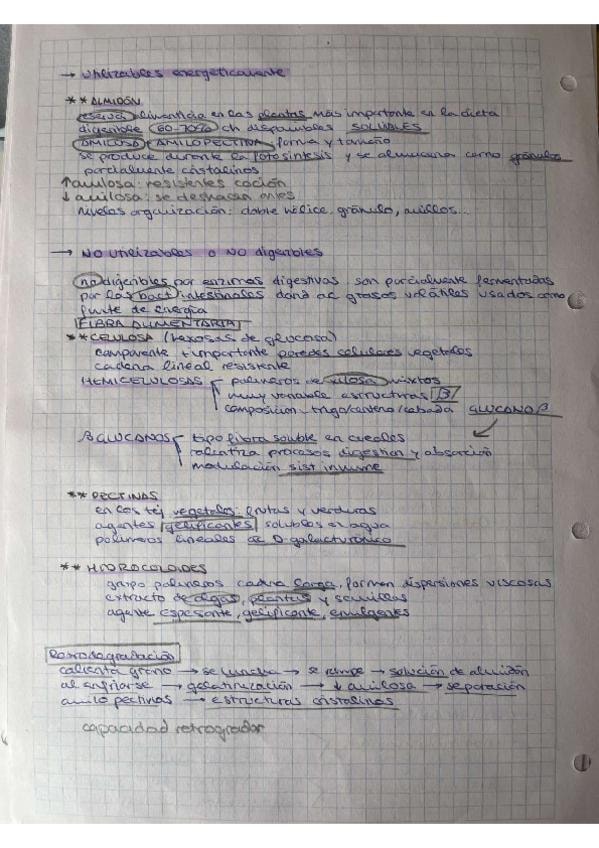 → utilizables energéticamente
** ALMIDÓN
reserva alimenticia en las plantas más importante en la dieta
digerible 60-70% ch disponibles SOLUBLES
AMILOSA AMILOPECTINA forma y tamaño
se produce durante la fotosíntesis y se almacena como gránulos
parcialmente cristalinos
↑ amilosa: resistentes cocción
↓ amilosa: se deshacen antes
niveles organización: doble hélice, gránulo, anillos...
→ NO utilizables o NO digeribles
no digeribles por enzimas digestivas. son parcialmente fermentadas
por las bact intestinales dand ac grasos volátiles usados como
fuente de energía
FIBRA ALIMENTARIA
** CELULOSA (hexosas de glucosa)
componente + importante paredes celulares vegetales
cadena lineal resistente
HEMICELULOSAS polímeros de xilosa mixtos
muy variable estructuras β
composición trigo/centeno/cebada GLUCANO β
β GLUCANOS tipo fibra soluble en cereales
ralentiza procesos digestión y absorción
modulación sist inmune
** PECTINAS
en los tej vegetales: frutas y verduras
agentes gelificantes solubles en agua
polímeros lineales de D-galacturónico
** HIDROCOLOIDES
grupo polímeros cadena larga, forman dispersiones viscosas
extracto de algas, plantas y semillas
agente espesante, gelificante, emulgentes
Retrodegradación
calienta grano → se hincha → se rompe → solución de almidón
al enfriarse → gelatinización → ↓ amilosa → separación
amilo pectinas → estructuras cristalinas
capacidad retrogradar